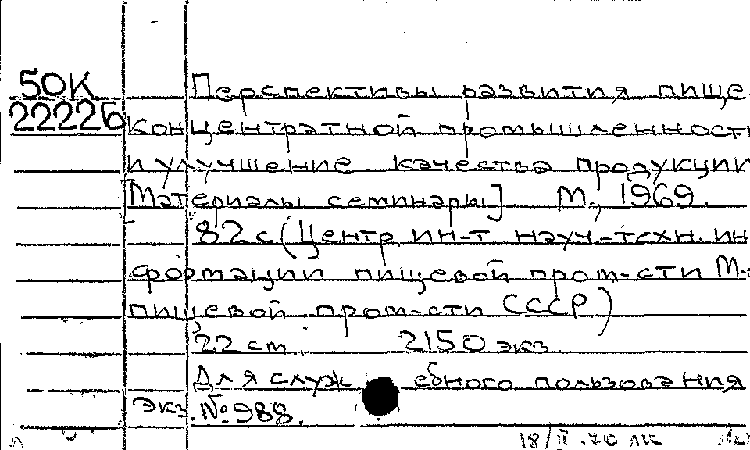 50К Перспективы развития пище-
22226 концентратной промышленности
и улучшение качества продукции
[Материалы семинары] М., 1969.
82 с (Центр. ин-т науч-техн. ин
формации пищевой пром-сти М-
пищевой пром-сти СССР)
22 см. 2150 экз
Для служебного пользования
экз. №988.
18/II-70